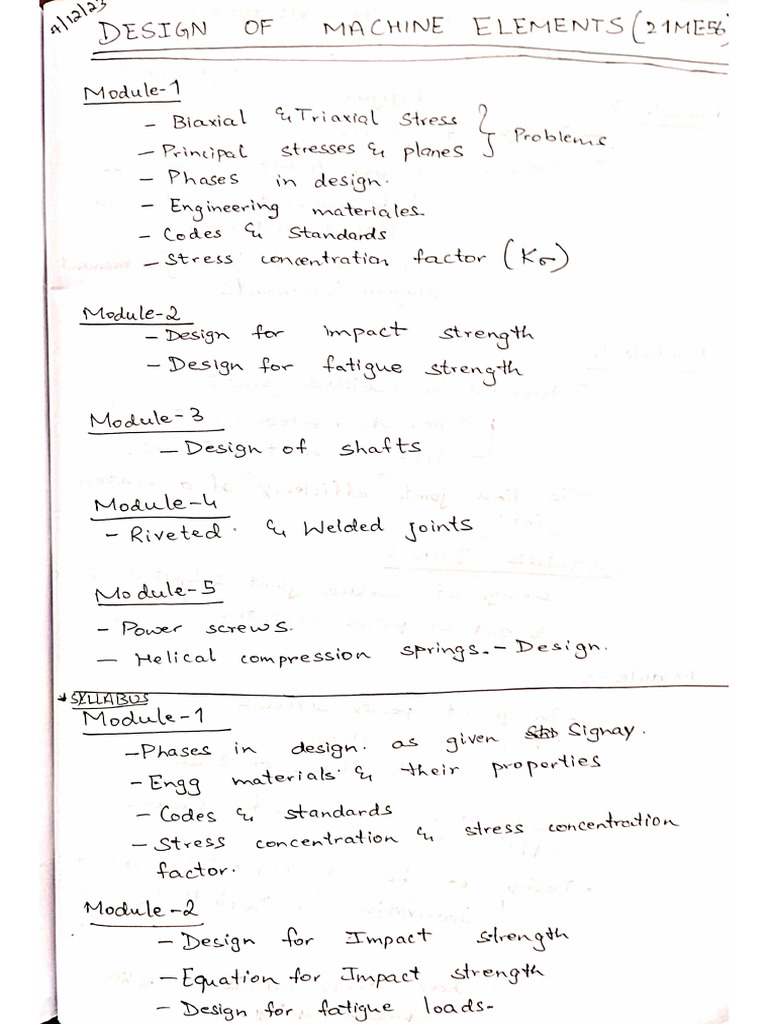 4/12/23
DESIGN OF MACHINE ELEMENTS (21ME56)
Module-1
- Biaxial & Triaxial stress
- Principal stresses & planes } Problems.
- Phases in design.
- Engineering materiales.
- Codes & Standards
- Stress concentration factor (Kσ)
Module-2
- Design for impact strength
- Design for fatigue strength
Module-3
- Design of shafts
Module-4
- Riveted & Welded joints
Module-5
- Power screws.
- Helical compression springs. - Design.
* SYLLABUS
Module-1
- Phases in design. as given Signay.
- Engg materials & their properties
- Codes & standards
- Stress concentration & stress concentration
factor.
Module-2
- Design for Impact strength
- Equation for Impact strength
- Design for fatigue loads-